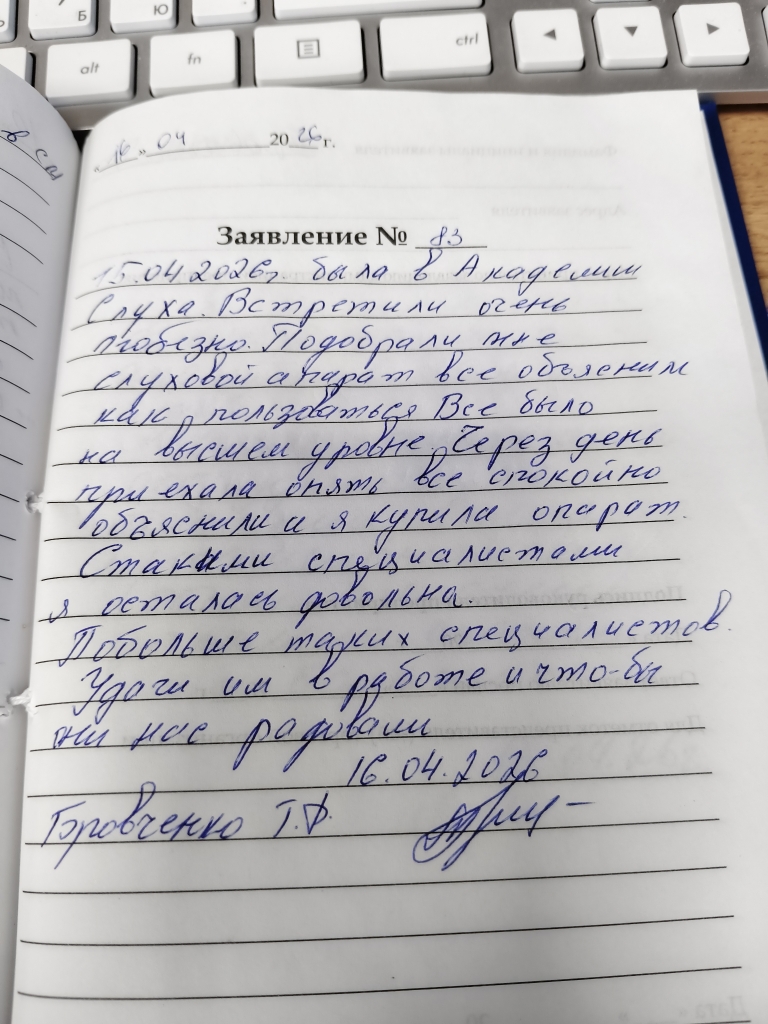 Б
Ю
alt
fn
ctrl
в сл
«16» 04 2026 г.
Заявление № 83
15.04 2026г. была в Академии
Слуха. Встретили очень
любезно. Подобрали мне
слуховой апарат все объяснили
как пользоваться Все было
на высшем уровне. Через день
приехала опять все спокойно
объяснили и я купила опарат.
С такими специалистами
я осталась довольна.
Побольше таких специалистов.
Удачи им в работе и что-бы
они нас радовали
16.04.2026
Т.Ф.